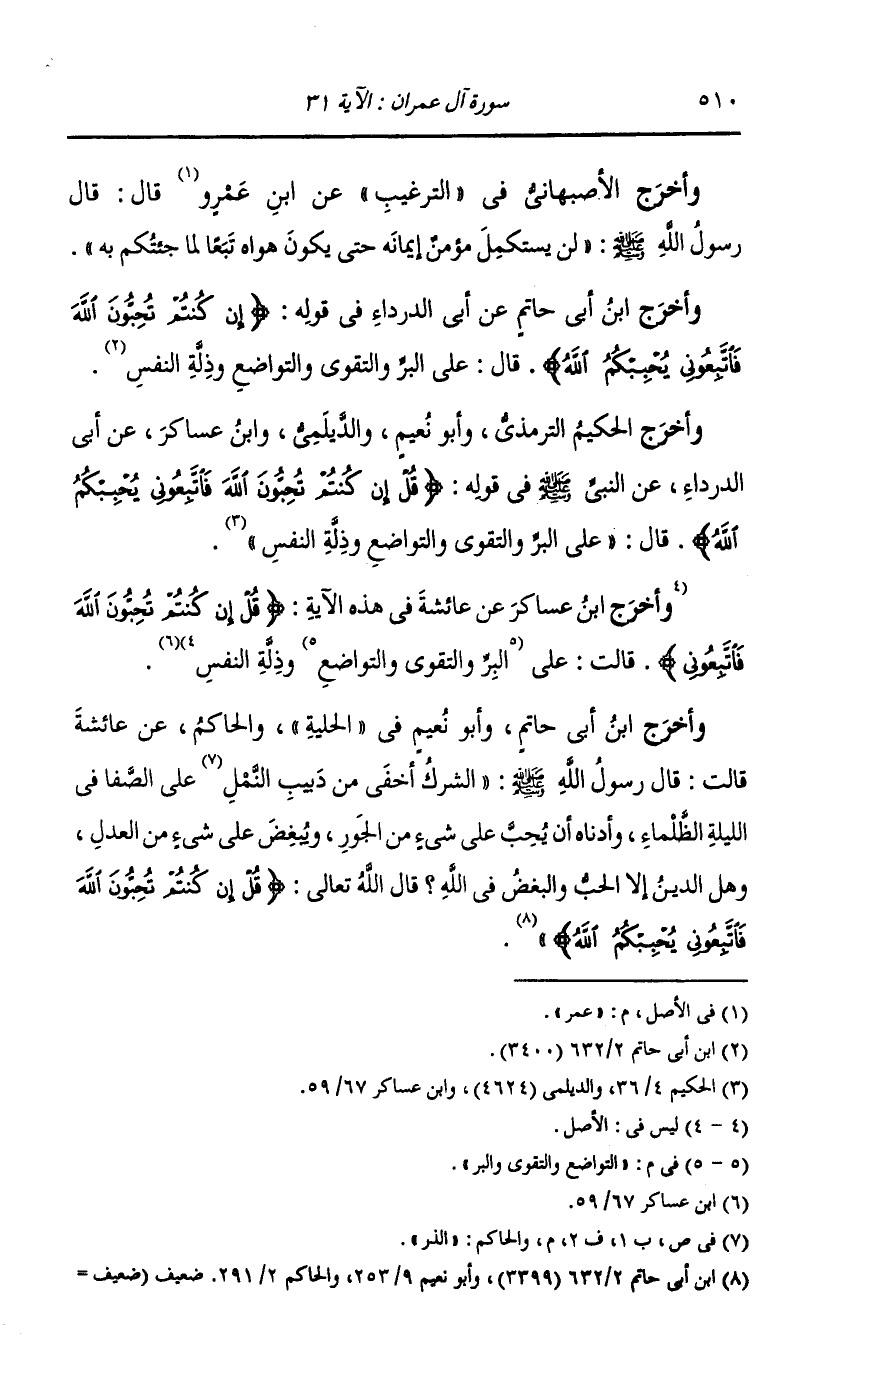 ٥١٠ سورة آل عمران : الآية ٣١
وأخرَج الأصبهانىُّ فى «الترغيبِ» عن ابنِ عَمْرٍو(١) قال : قال
رسولُ اللَّهِ ﷺ : «لن يستكمِلَ مؤمنٌ إيمانَه حتى يكونَ هواه تَبَعًا لما جئتُكم به» .
وأخرَج ابنُ أبى حاتمٍ عن أبى الدرداءِ فى قولِه : ﴿إِن كُنتُمْ تُحِبُّونَ ٱللَّهَ
فَٱتَّبِعُونِى يُحْبِبْكُمُ ٱللَّهُ﴾ . قال : على البرِّ والتقوى والتواضعِ وذِلَّةِ النفسِ(٢) .
وأخرَج الحكيمُ الترمذىُّ ، وأبو نُعيمٍ ، والدَّيلَمِىُّ ، وابنُ عساكرَ ، عن أبى
الدرداءِ ، عن النبىِّ ﷺ فى قولِه : ﴿قُلْ إِن كُنتُمْ تُحِبُّونَ ٱللَّهَ فَٱتَّبِعُونِى يُحْبِبْكُمُ
ٱللَّهُ﴾ . قال : «على البرِّ والتقوى والتواضعِ وذِلَّةِ النفسِ»(٣) .
(٤وأخرَج ابنُ عساكرَ عن عائشةَ فى هذه الآيةِ : ﴿قُلْ إِن كُنتُمْ تُحِبُّونَ ٱللَّهَ
فَٱتَّبِعُونِى﴾ . قالت : على (٥البِرِّ والتقوى والتواضعِ٥) وذِلَّةِ النفسِ٤)(٦) .
وأخرَج ابنُ أبى حاتمٍ ، وأبو نُعيمٍ فى «الحليةِ» ، والحاكمُ ، عن عائشةَ
قالت : قال رسولُ اللَّهِ ﷺ : «الشركُ أخفَى من دَبيبِ النَّمْلِ(٧) على الصَّفا فى
الليلةِ الظَّلْماءِ ، وأدناه أن يُحِبَّ على شىءٍ من الجَورِ ، ويُبغِضَ على شىءٍ من العدلِ ،
وهل الدينُ إلا الحبُّ والبغضُ فى اللَّهِ ؟ قال اللَّهُ تعالى : ﴿قُلْ إِن كُنتُمْ تُحِبُّونَ ٱللَّهَ
فَٱتَّبِعُونِى يُحْبِبْكُمُ ٱللَّهُ﴾»(٨) .
(١) فى الأصل ، م : «عمر» .
(٢) ابن أبى حاتم ٦٣٢/٢ (٣٤٠٠) .
(٣) الحكيم ٣٦/٤، والديلمى (٤٦٢٤) ، وابن عساكر ٥٩/٦٧.
(٤ - ٤) ليس فى : الأصل .
(٥ - ٥) فى م : «التواضع والتقوى والبر» .
(٦) ابن عساكر ٥٩/٦٧.
(٧) فى ص ، ب ١، ف ٢، م ، والحاكم : «الذر» .
(٨) ابن أبى حاتم ٦٣٢/٢ (٣٣٩٩) ، وأبو نعيم ٢٥٣/٩، والحاكم ٢٩١/٢. ضعيف (ضعيف =